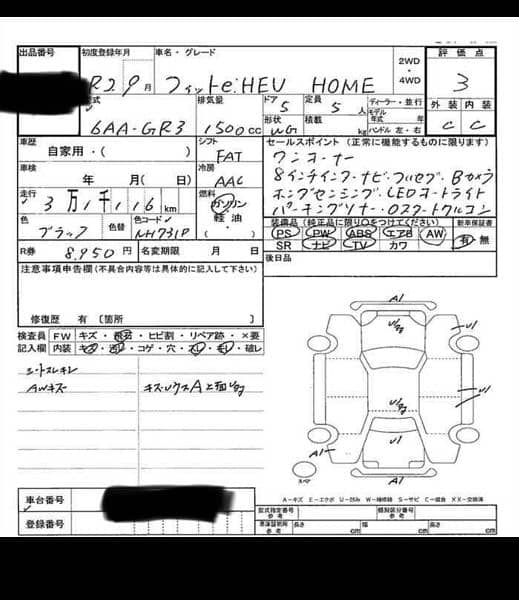 出品番号
初度登録年月
車名・グレード
2WD
・
4WD
評価点
R2 9月
フィットe:HEV HOME
3
型式
排気量
ドア
定員
ディーラー・並行
外装 内装
6AA-GR3
1500cc
5
5人
モデル年式 年
形状
積載
ハンドル 左・右
WG
kg
C C
車歴
自家用・( )
シフト
FAT
セールスポイント(正常に機能するものに限ります)
ワンオーナー
8インチインターナビ・フルセグ・Bカメラ
ホンダセンシング・LEDオートライト
パーキングセンサー・
車検
年 月( )
冷房
AAC
走行
3万1千116km
燃料
ガソリン
軽油・
( )
色
ブラック
色替
色コード
NH731P
装備品(純正品に限り○をつけてください)
新車保証書
PS PW ABS エアB AW
SR ナビ TV カワ
有・無
R券
8,950円
名変期限 月 日
後日品
注意事項申告欄(不具合内容等は具体的に記入して下さい)
修復歴 有 〔箇所 〕
検査員記入欄
FW キズ・飛石・ヒビ割・リペア跡・×要
内装 キズ・汚レ・コゲ・穴・スレ・キレ・破レ
シートスレキレ
AWキズ
キズ・Uウス
A1
U1
A1
A1
スペア
A-キズ E-エクボ U-凹み W-補修跡 S-サビ C-腐食 XX-交換済
車台番号
登録番号
型式指定番号
参考
類別区分番号
参考
車庫証明用
参考
長さ cm
幅 cm
高さ cm